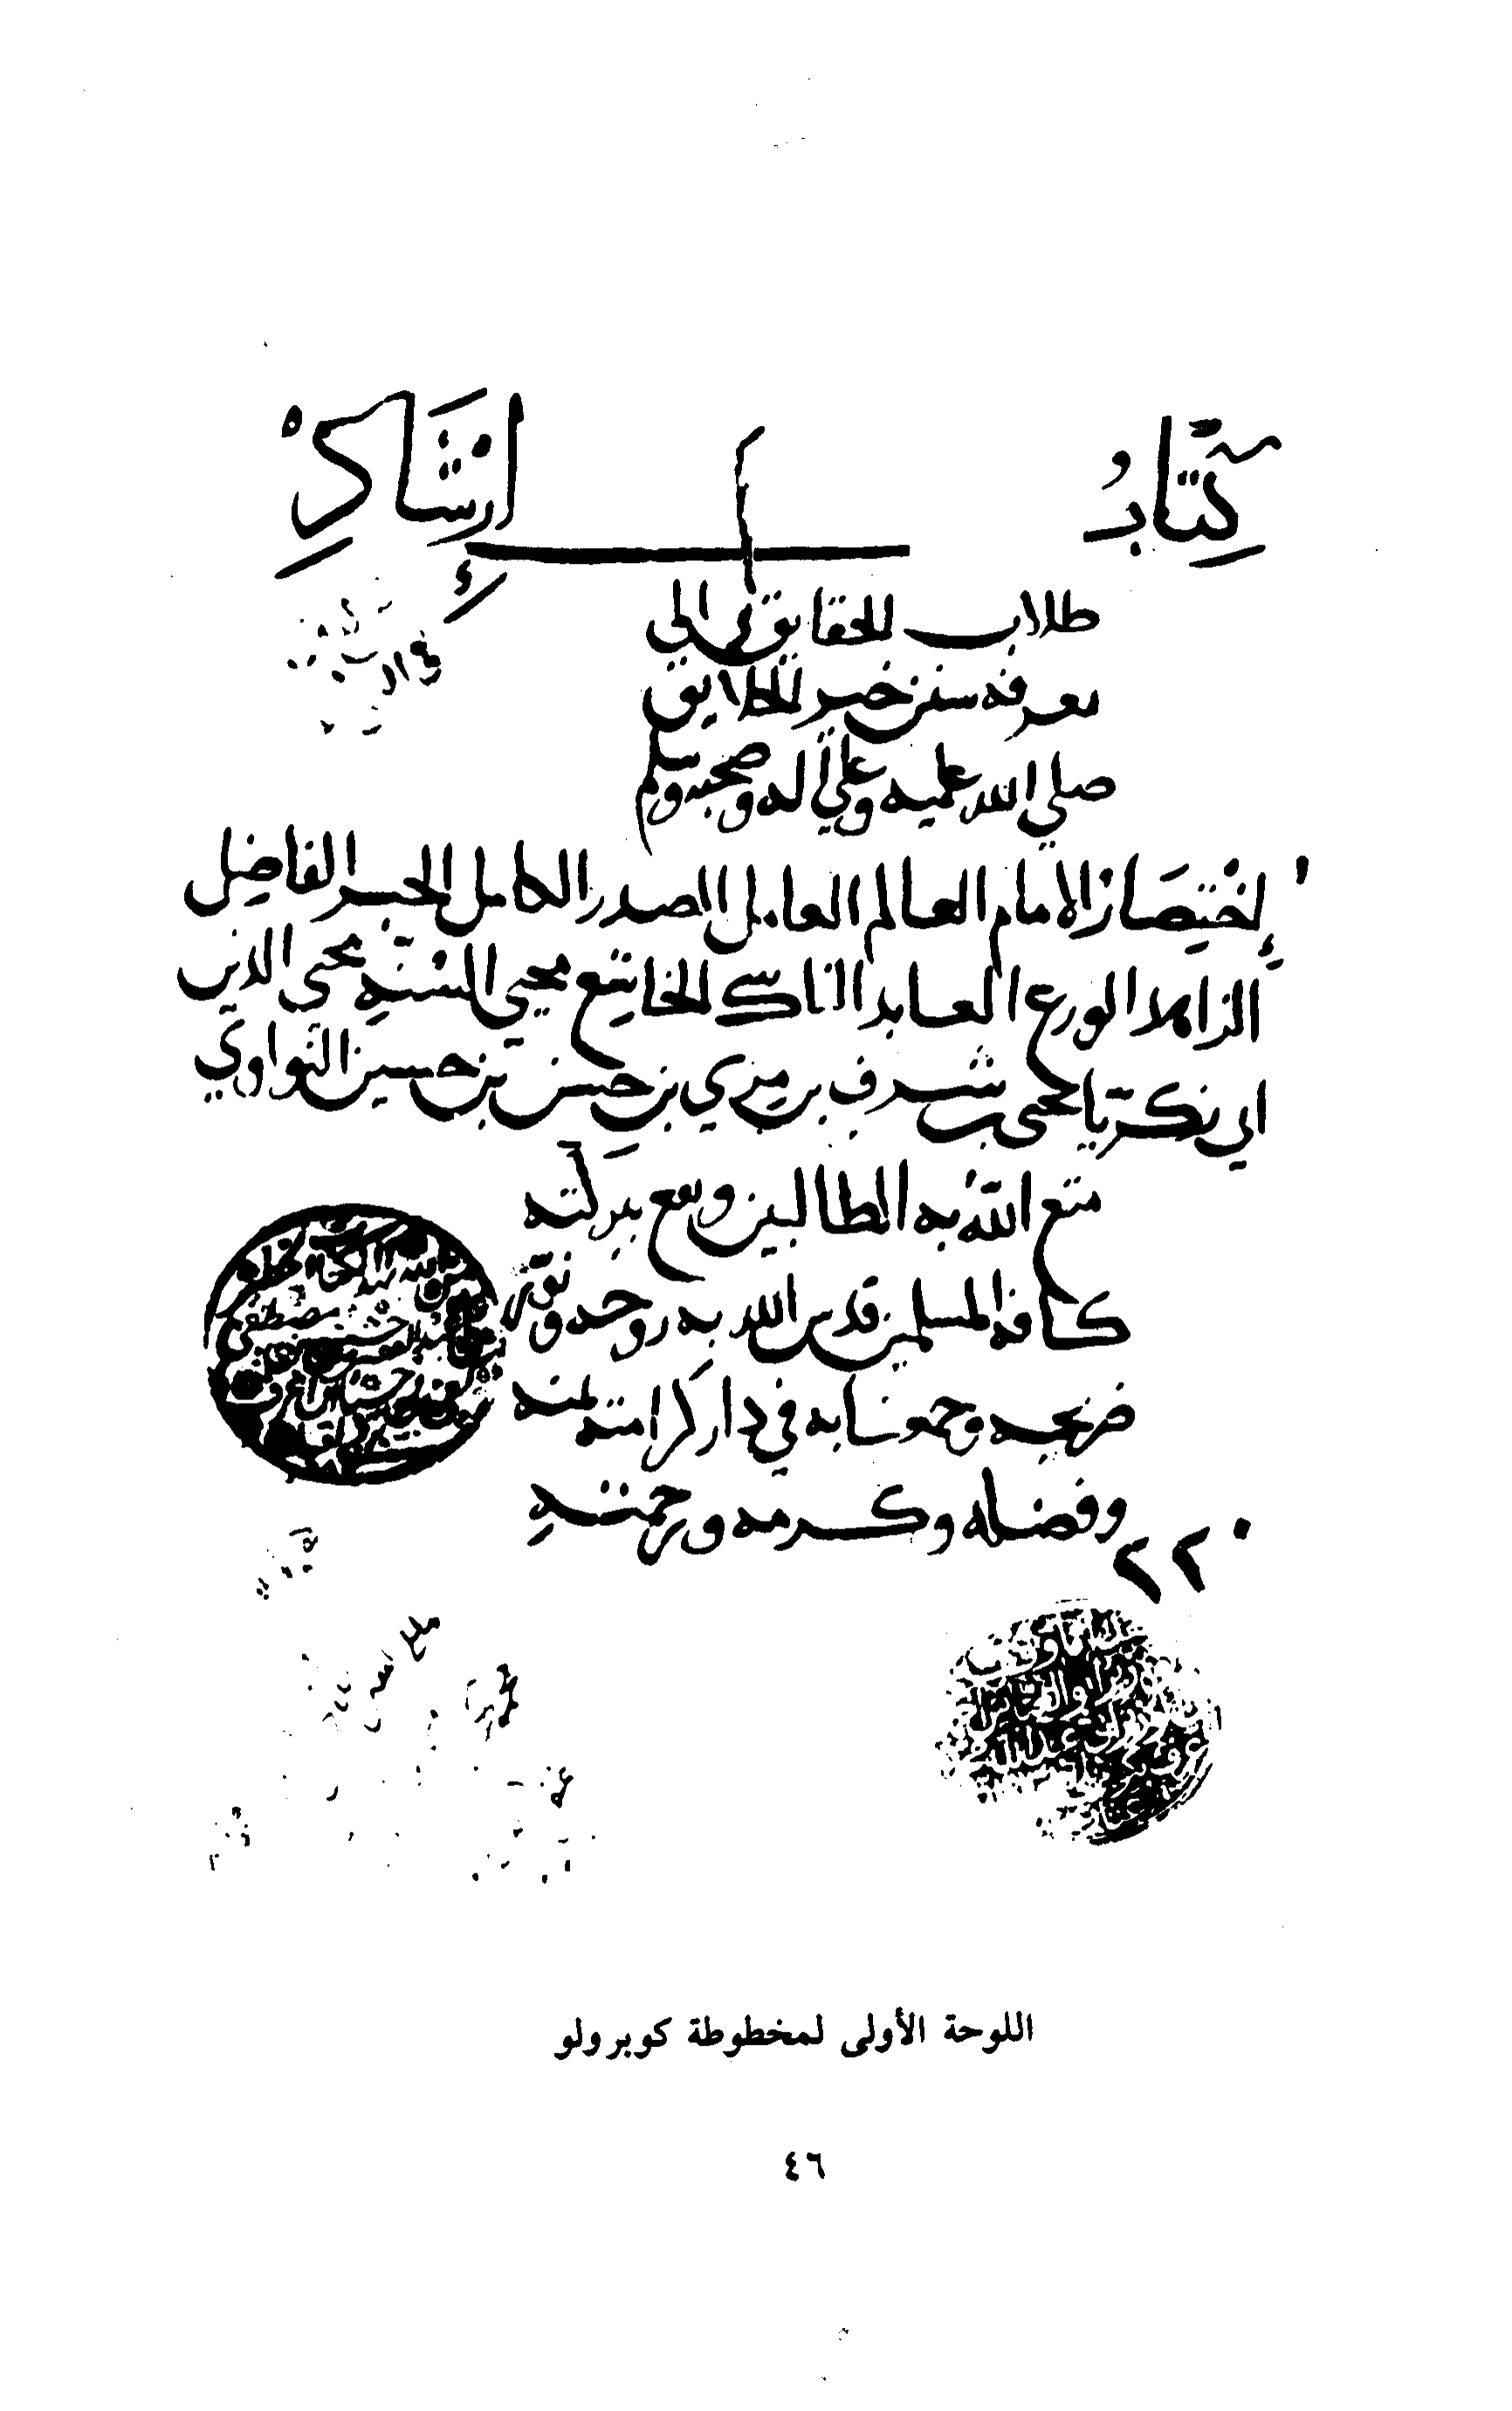 كِتَابُ إِرْشَادِ
طلاب الحقايق الى
معرفة سنن خير الخلايق
صلى الله عليه وعلى اله وصحبه وسلم
إخْتِصَار الامام العالم العامل الصدر الكامل الحبر الفاضل
الزاهد الورع العابد الناسك الخاشع محيي السنة محيى الدين
ابي زكريا يحيى بن شرف بن مري بن حسن بن حسين النواوي
متع الله به الطالبين ونفع ببركته
كافة المسلمين قدس الله روحه ونور
ضريحه وجمعنا به في دار كرامته بمنه
وفضله وكرمه ورحمته
٢٢٠
اللوحة الأولى لمخطوطة كوبرولو
٤٦